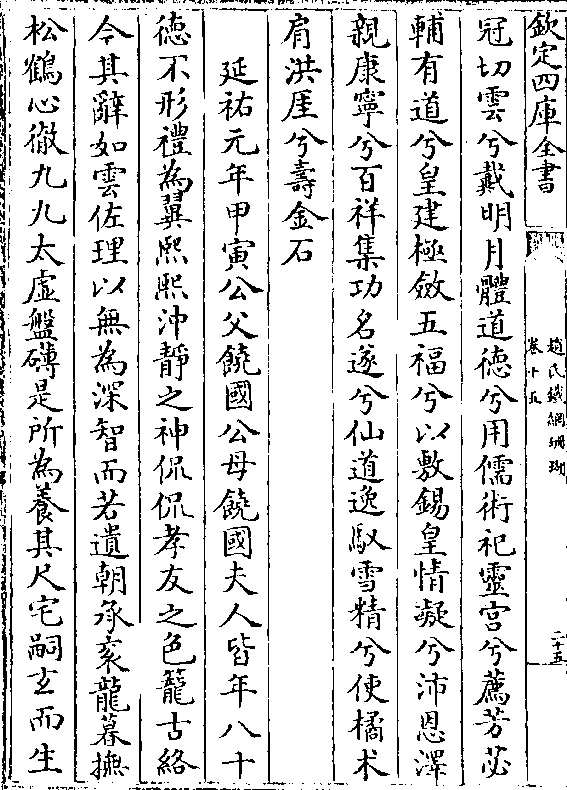 欽定四庫全書
趙氏鐵網珊瑚
卷十五
二十五
冠切雲兮戴明月體道德兮用儒術祀靈宫兮薦芳苾
輔有道兮皇建極斂五福兮以敷錫皇情凝兮沛恩澤
親康寧兮百祥集功名遂兮仙道逸馭雪精兮使橘术
肩洪厓兮壽金石
延祐元年甲寅公父饒國公母饒國夫人皆年八十
徳不形禮為翼熙熙沖靜之神侃侃孝友之色籠古絡
今其辭如雲佐理以無為深智而若遺朝承袞龍暮撫
松鶴心徹九九太虛盤礴是所為養其尺宅嗣玄而生